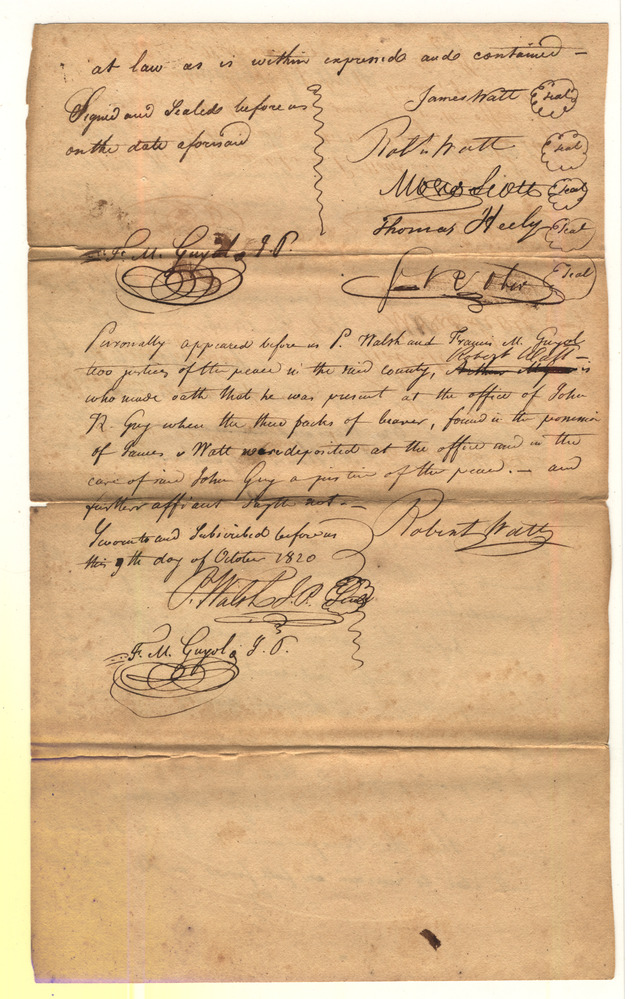 at law as is within expressed and contained —
Signed and Sealed before us
on the date aforesaid
James Watt Seal
Robt Watt Seal
Seal
Thomas Heely Seal
F. M. Guyol J. P.
Seal
Personally appeared before us P. Walsh and Francis M. Guyol
two justices of the peace in the said county, Robert Watt —
who made oath that he was present at the office of John
R. Guy when the three packs of beaver, found in the possession
of James Watt were deposited at the office and in the
care of said John Guy a justice of the peace. — and
further affiant sayth not. —
Sworn to and Subscribed before us
this 9th day of October 1820
Robert Watt
P. Walsh J. P. Seal
F. M. Guyol J. P.